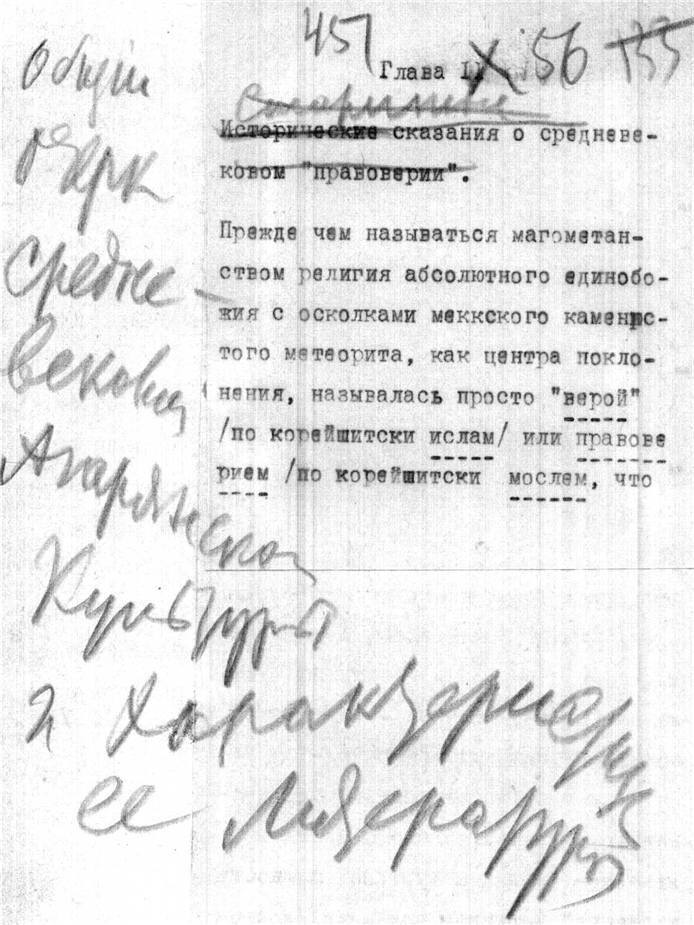 457
Глава II X 56 133
Старинные
Исторические сказания о средневе-
ковом "правоверии".
Прежде чем называться магометан-
ством религия абсолютного единобо-
жия с осколками меккского каменис-
того метеорита, как центра покло-
нения, называлась просто "верой"
/по корейшитски ислам/ или правове
рием /по корейшитски мослем, что
Общий
очерк
средне-
вековой
Агарянской
Культуры
и характеристика
ее литературы